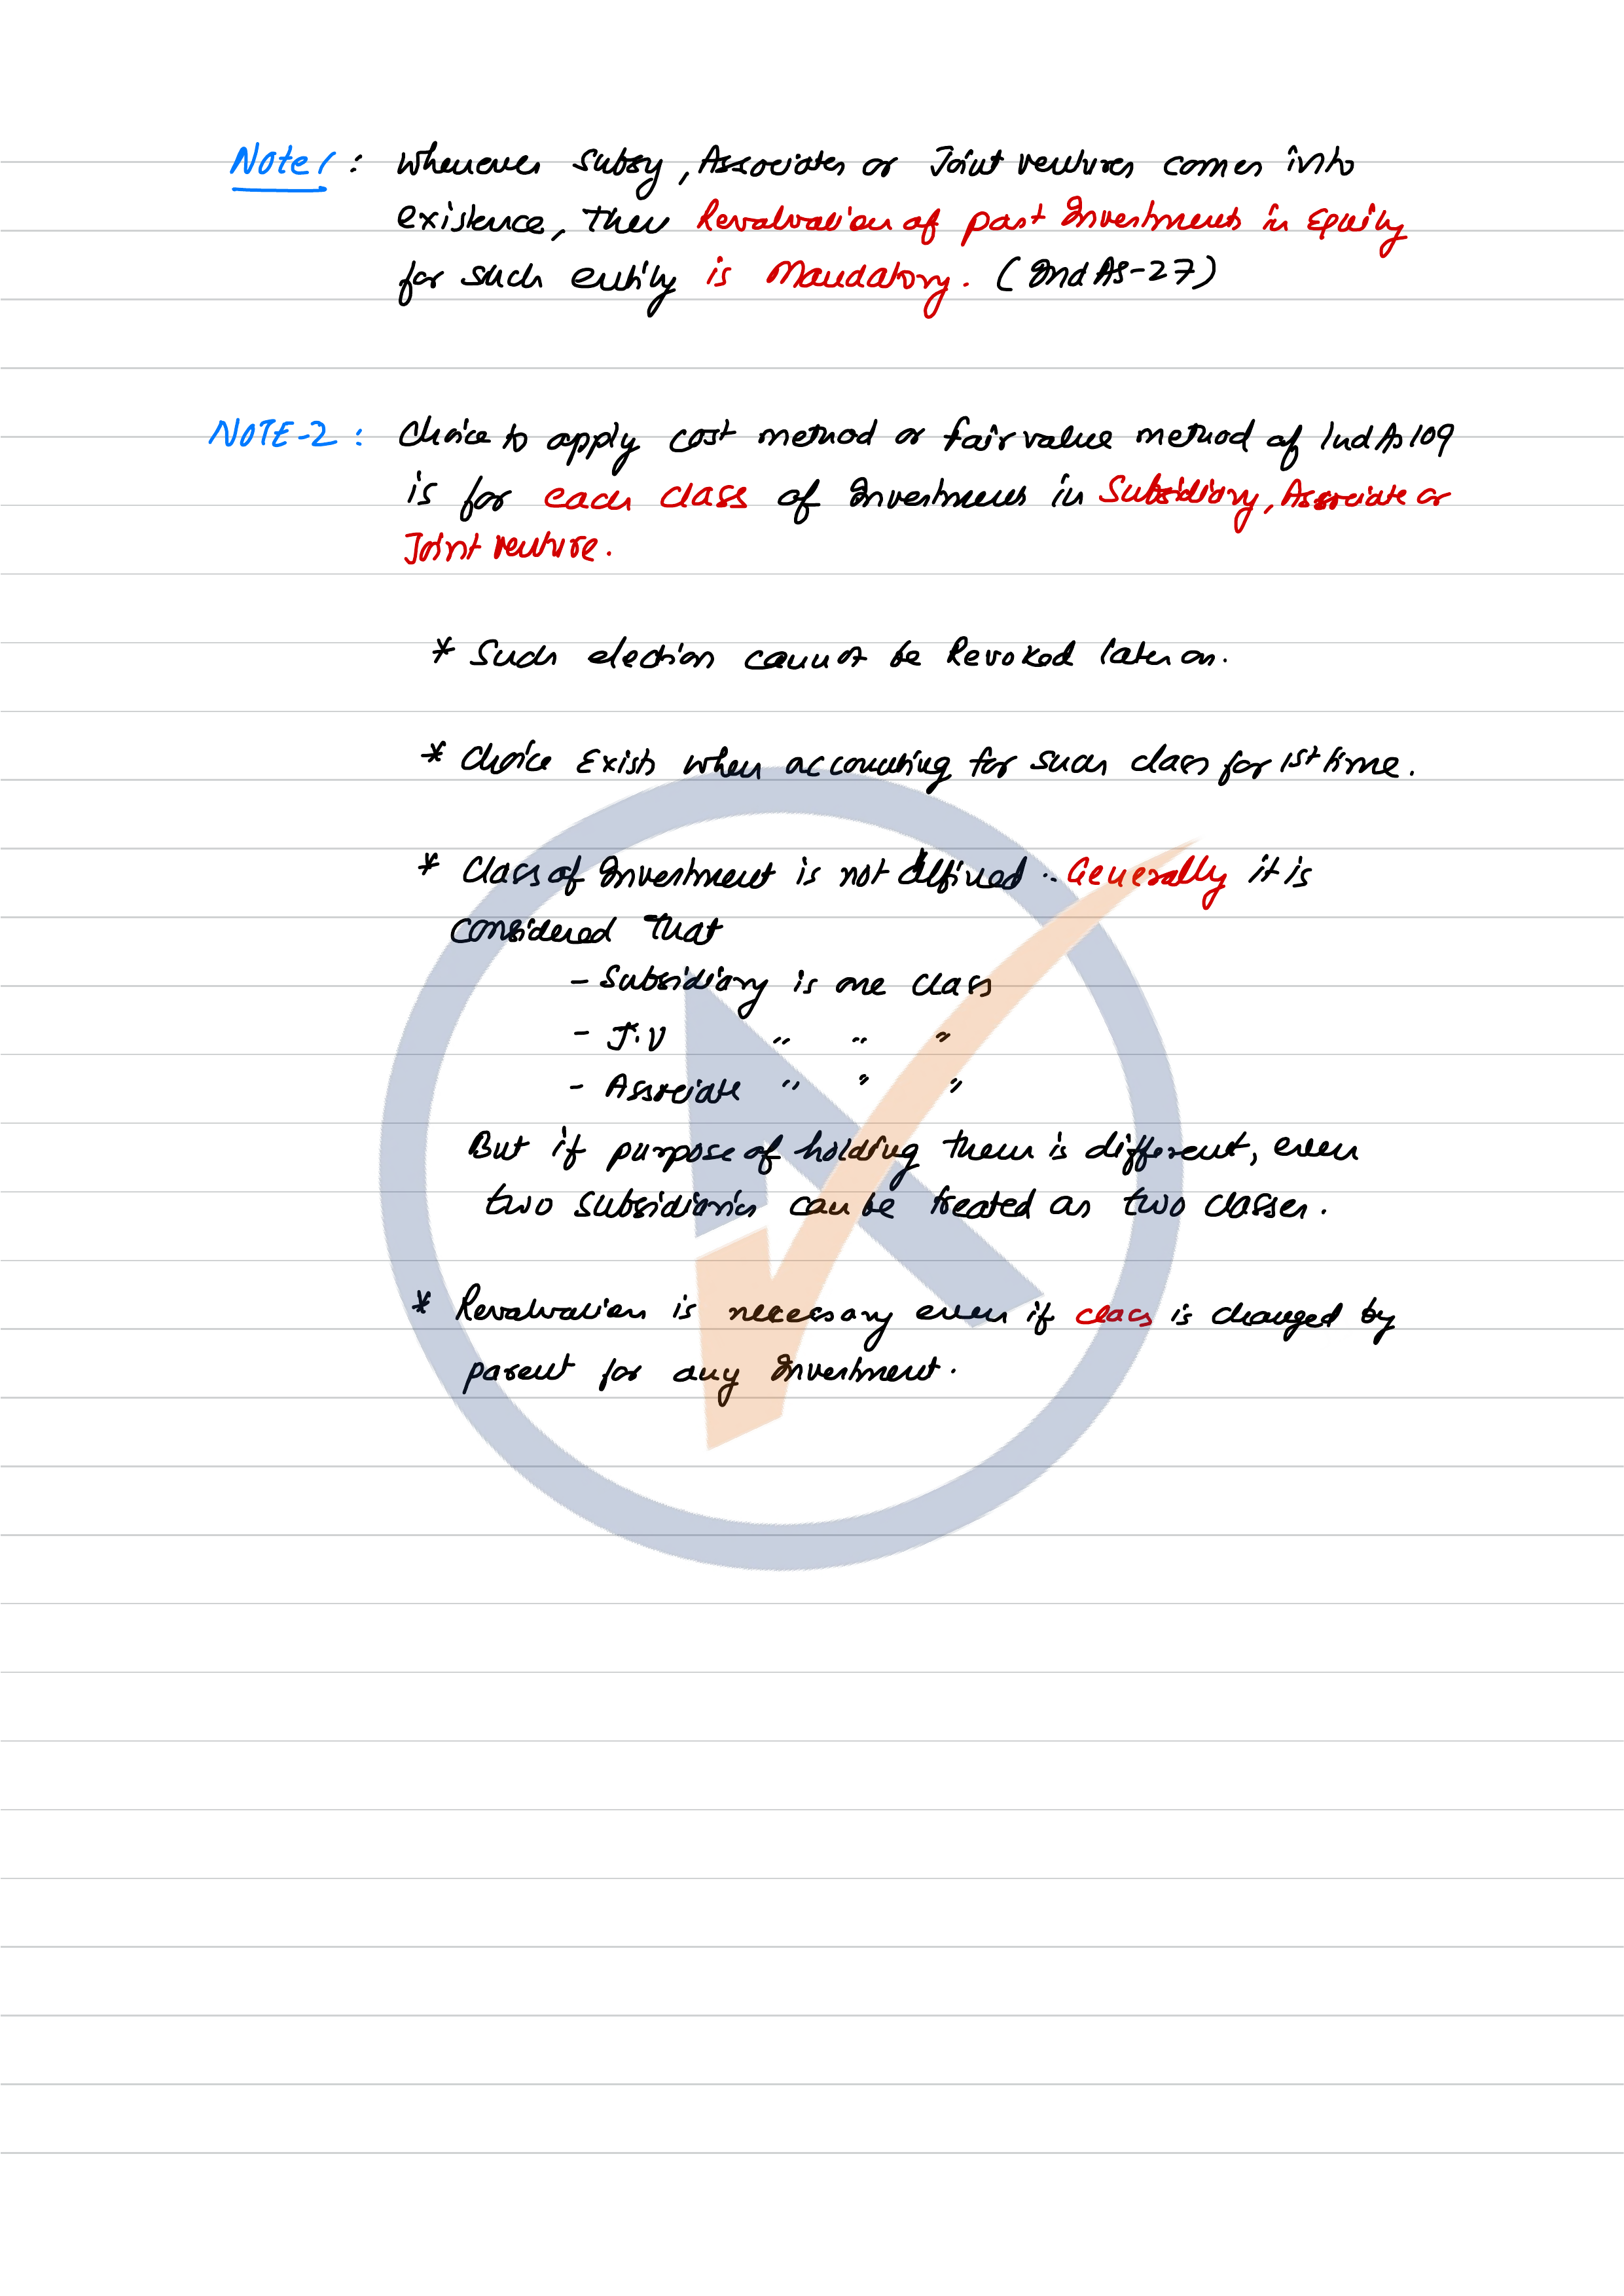 Note 1 : Whenever Subsy, Associates or Joint ventures comes into
existence, then Revaluation of past Investments in Equity
for such entity is Mandatory. (Ind AS-27)
NOTE-2 : Choice to apply cost method or fair value method of Ind As 109
is for each class of Investments in Subsidiary, Associate or
Joint venture.
* Such election cannot be Revoked later on.
* Choice Exists when accounting for such class for 1st time.
* Class of Investment is not defined .. Generally it is
considered that
- Subsidiary is one class
- J.V " " "
- Associate " " "
But if purpose of holding them is different, even
two subsidiaries can be treated as two classes.
* Revaluation is necessary even if class is changed by
parent for any Investment.